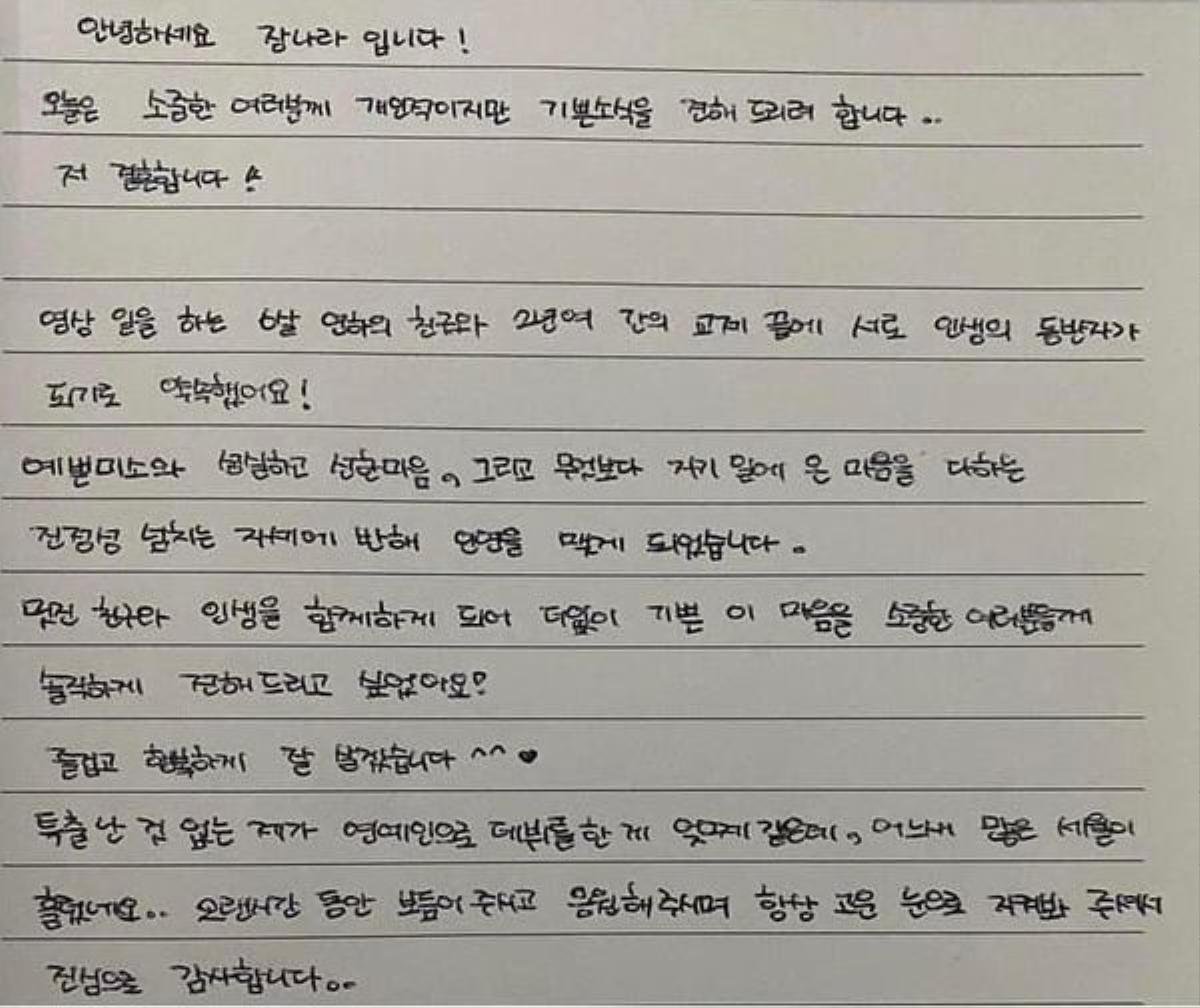 안녕하세요 장나라 입니다!
오늘은 소중한 여러분께 개인적이지만 기쁜소식을 전해 드리려 합니다..
저 결혼합니다 ^^
영상 일을 하는 6살 연하의 친구와 2년여 간의 교제 끝에 서로 인생의 동반자가
되기로 약속했어요!
예쁜미소와 성실하고 선한마음, 그리고 무엇보다 자기 일에 온 마음을 다하는
진정성 넘치는 자세에 반해 인연을 맺게 되었습니다.
멋진 친구와 인생을 함께하게 되어 더없이 기쁜 이 마음을 소중한 여러분들께
솔직하게 전해드리고 싶었어요!
즐겁고 행복하게 잘 살겠습니다 ^^ ♥
특출난 것 없는 제가 연예인으로 데뷔를한 게 엊그제 같은데, 어느새 많은 세월이
흘렀네요.. 오랜시간 동안 보듬어 주시고 응원해주시며 항상 고운 눈으로 지켜봐 주셔서
진심으로 감사합니다..